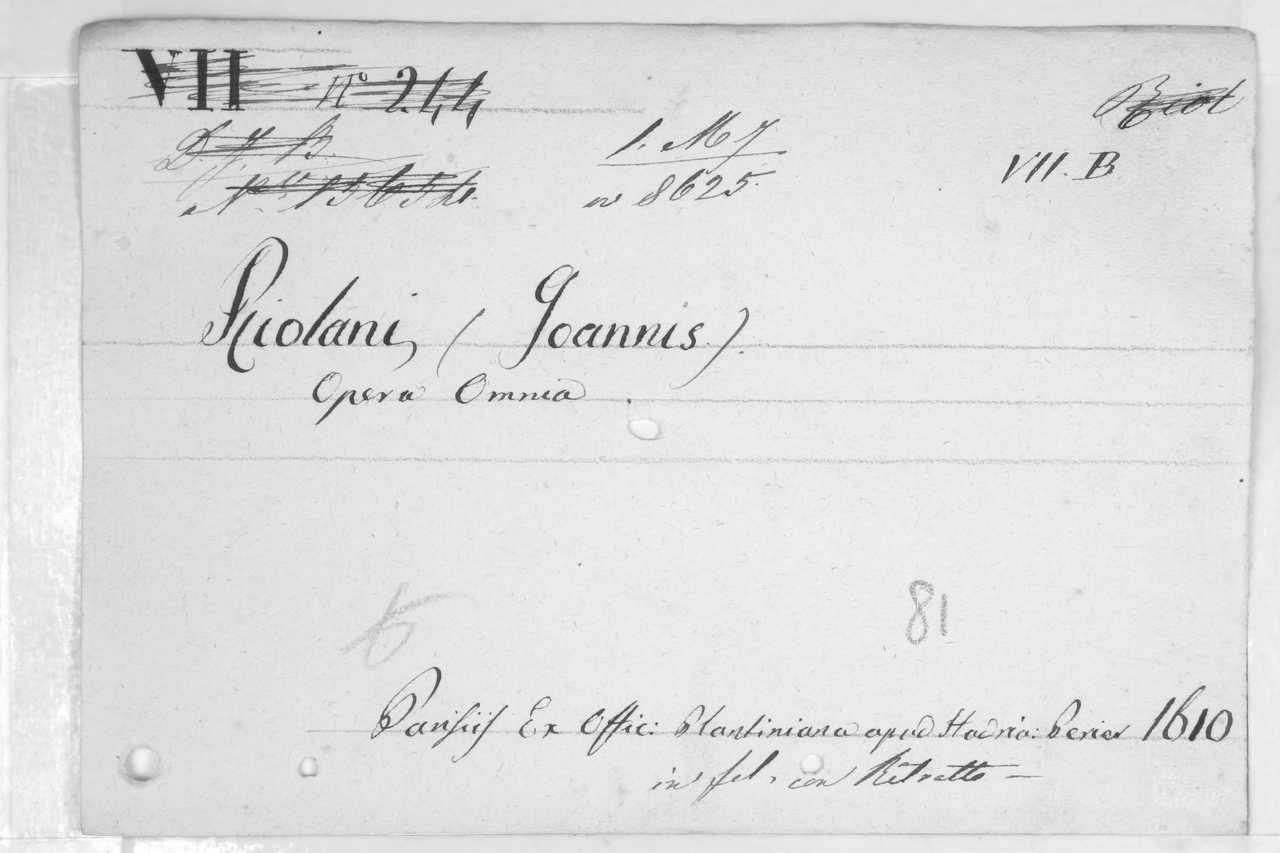 VII N° 244
Biot
D. y B.
N° 15654.
1. M 7
n 8625.
VII. B
Riolani, (Joannis).
Opera Omnia.
81
Parisiis Ex Offic: Plantiniana apud Hadria: Perier 1610
in fol. con Ritratto —